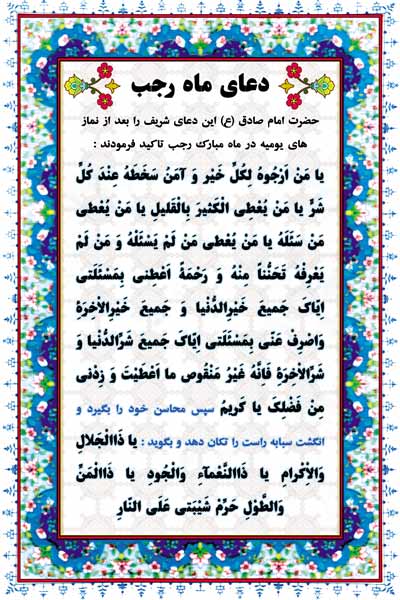 دعای ماه رجب
حضرت امام صادق (ع) این دعای شریف را بعد از نماز
های یومیه در ماه مبارک رجب تاکید فرمودند :
یا مَنْ اَرْجُوهُ لِکُلِّ خَیْرٍ وَ آمَنُ سَخَطَهُ عِنْدَ کُلِّ
شَرٍّ یا مَنْ یُعْطِی الْکَثیرَ بِالْقَلیلِ یا مَنْ یُعْطی
مَنْ سَئَلَهُ یا مَنْ یُعْطی مَنْ لَمْ یَسْئَلْهُ وَ مَنْ لَمْ
یَعْرِفْهُ تَحَنُّناً مِنْهُ وَ رَحْمَةً اَعْطِنی بِمَسْئَلَتی
اِیّاکَ جَمیعَ خَیْرِالدُّنْیا وَ جَمیعَ خَیْرِالاْخِرَةِ
وَاصْرِفْ عَنّی بِمَسْئَلَتی اِیّاکَ جَمیعَ شَرِّالدُّنْیا وَ
شَرِّالاْخِرَةِ فَاِنَّهُ غَیْرُ مَنْقُوصٍ ما اَعْطَیْتَ وَ زِدْنی
مِنْ فَضْلِکَ یا کَریمُ سپس محاسن خود را بگیرد و
انگشت سبابه راست را تکان دهد و بگوید : یا ذَاالْجَلالِ
وَالاْکْرامِ یا ذَاالنَّعْمآءِ وَالْجُودِ یا ذَاالْمَنِّ
وَالطَّوْلِ حَرِّمْ شَیْبَتی عَلَی النّارِ